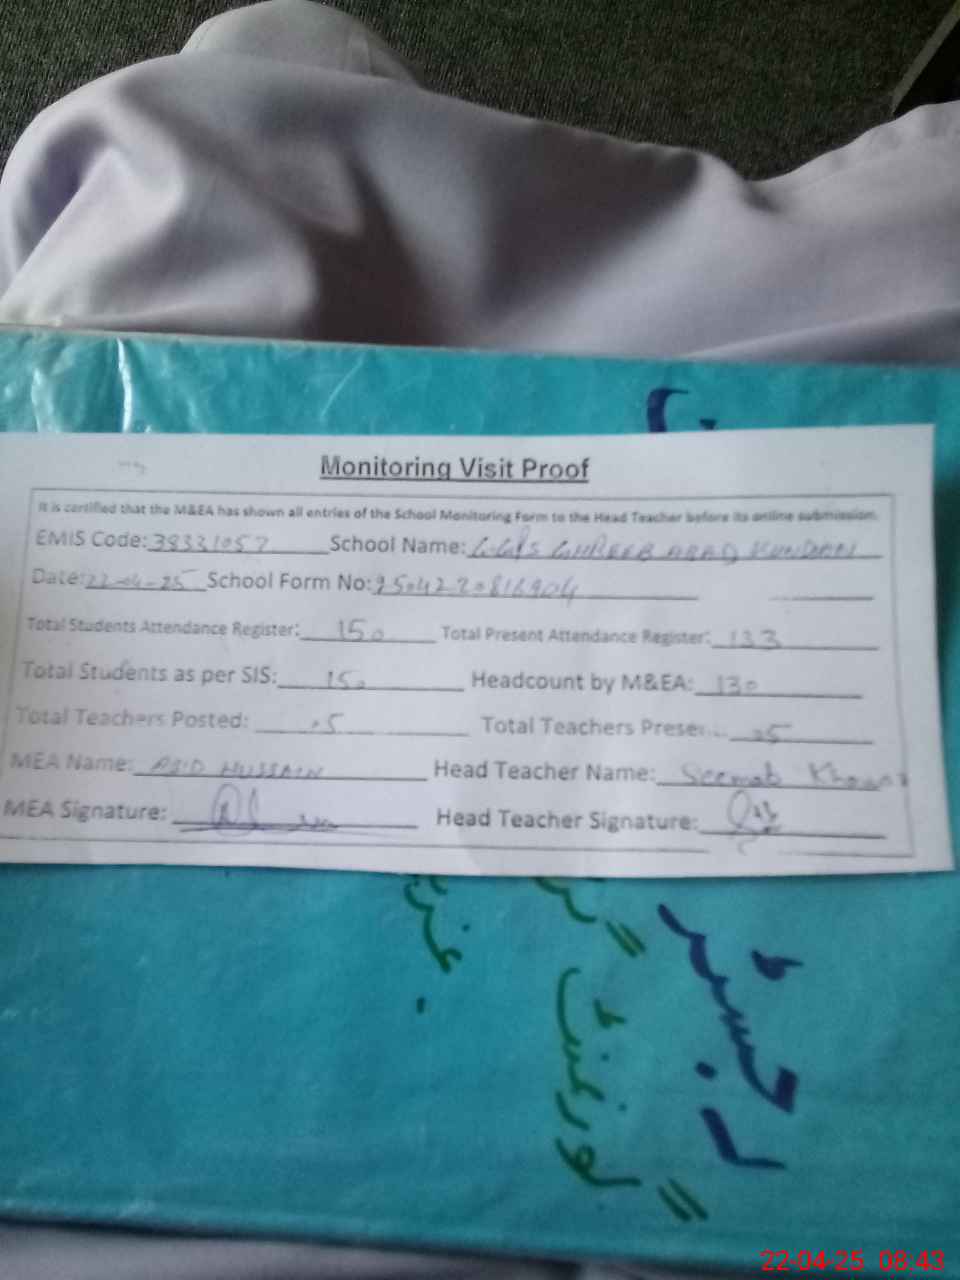 Monitoring Visit Proof
It is certified that the M&EA has shown all entries of the School Monitoring Form to the Head Teacher before its online submission.
EMIS Code: 38331057 School Name: GGPS GHREEB ABAD KUNDIAN
Date: 22-04-25 School Form No: 2504220816904
Total Students Attendance Register: 150 Total Present Attendance Register: 133
Total Students as per SIS: 150 Headcount by M&EA: 130
Total Teachers Posted: 05 Total Teachers Present: 05
MEA Name: HUSSAIN Head Teacher Name: Seemab Khanam
MEA Signature: Head Teacher Signature:
رجسٹر
گورنمنٹ
22-04-25 08:43